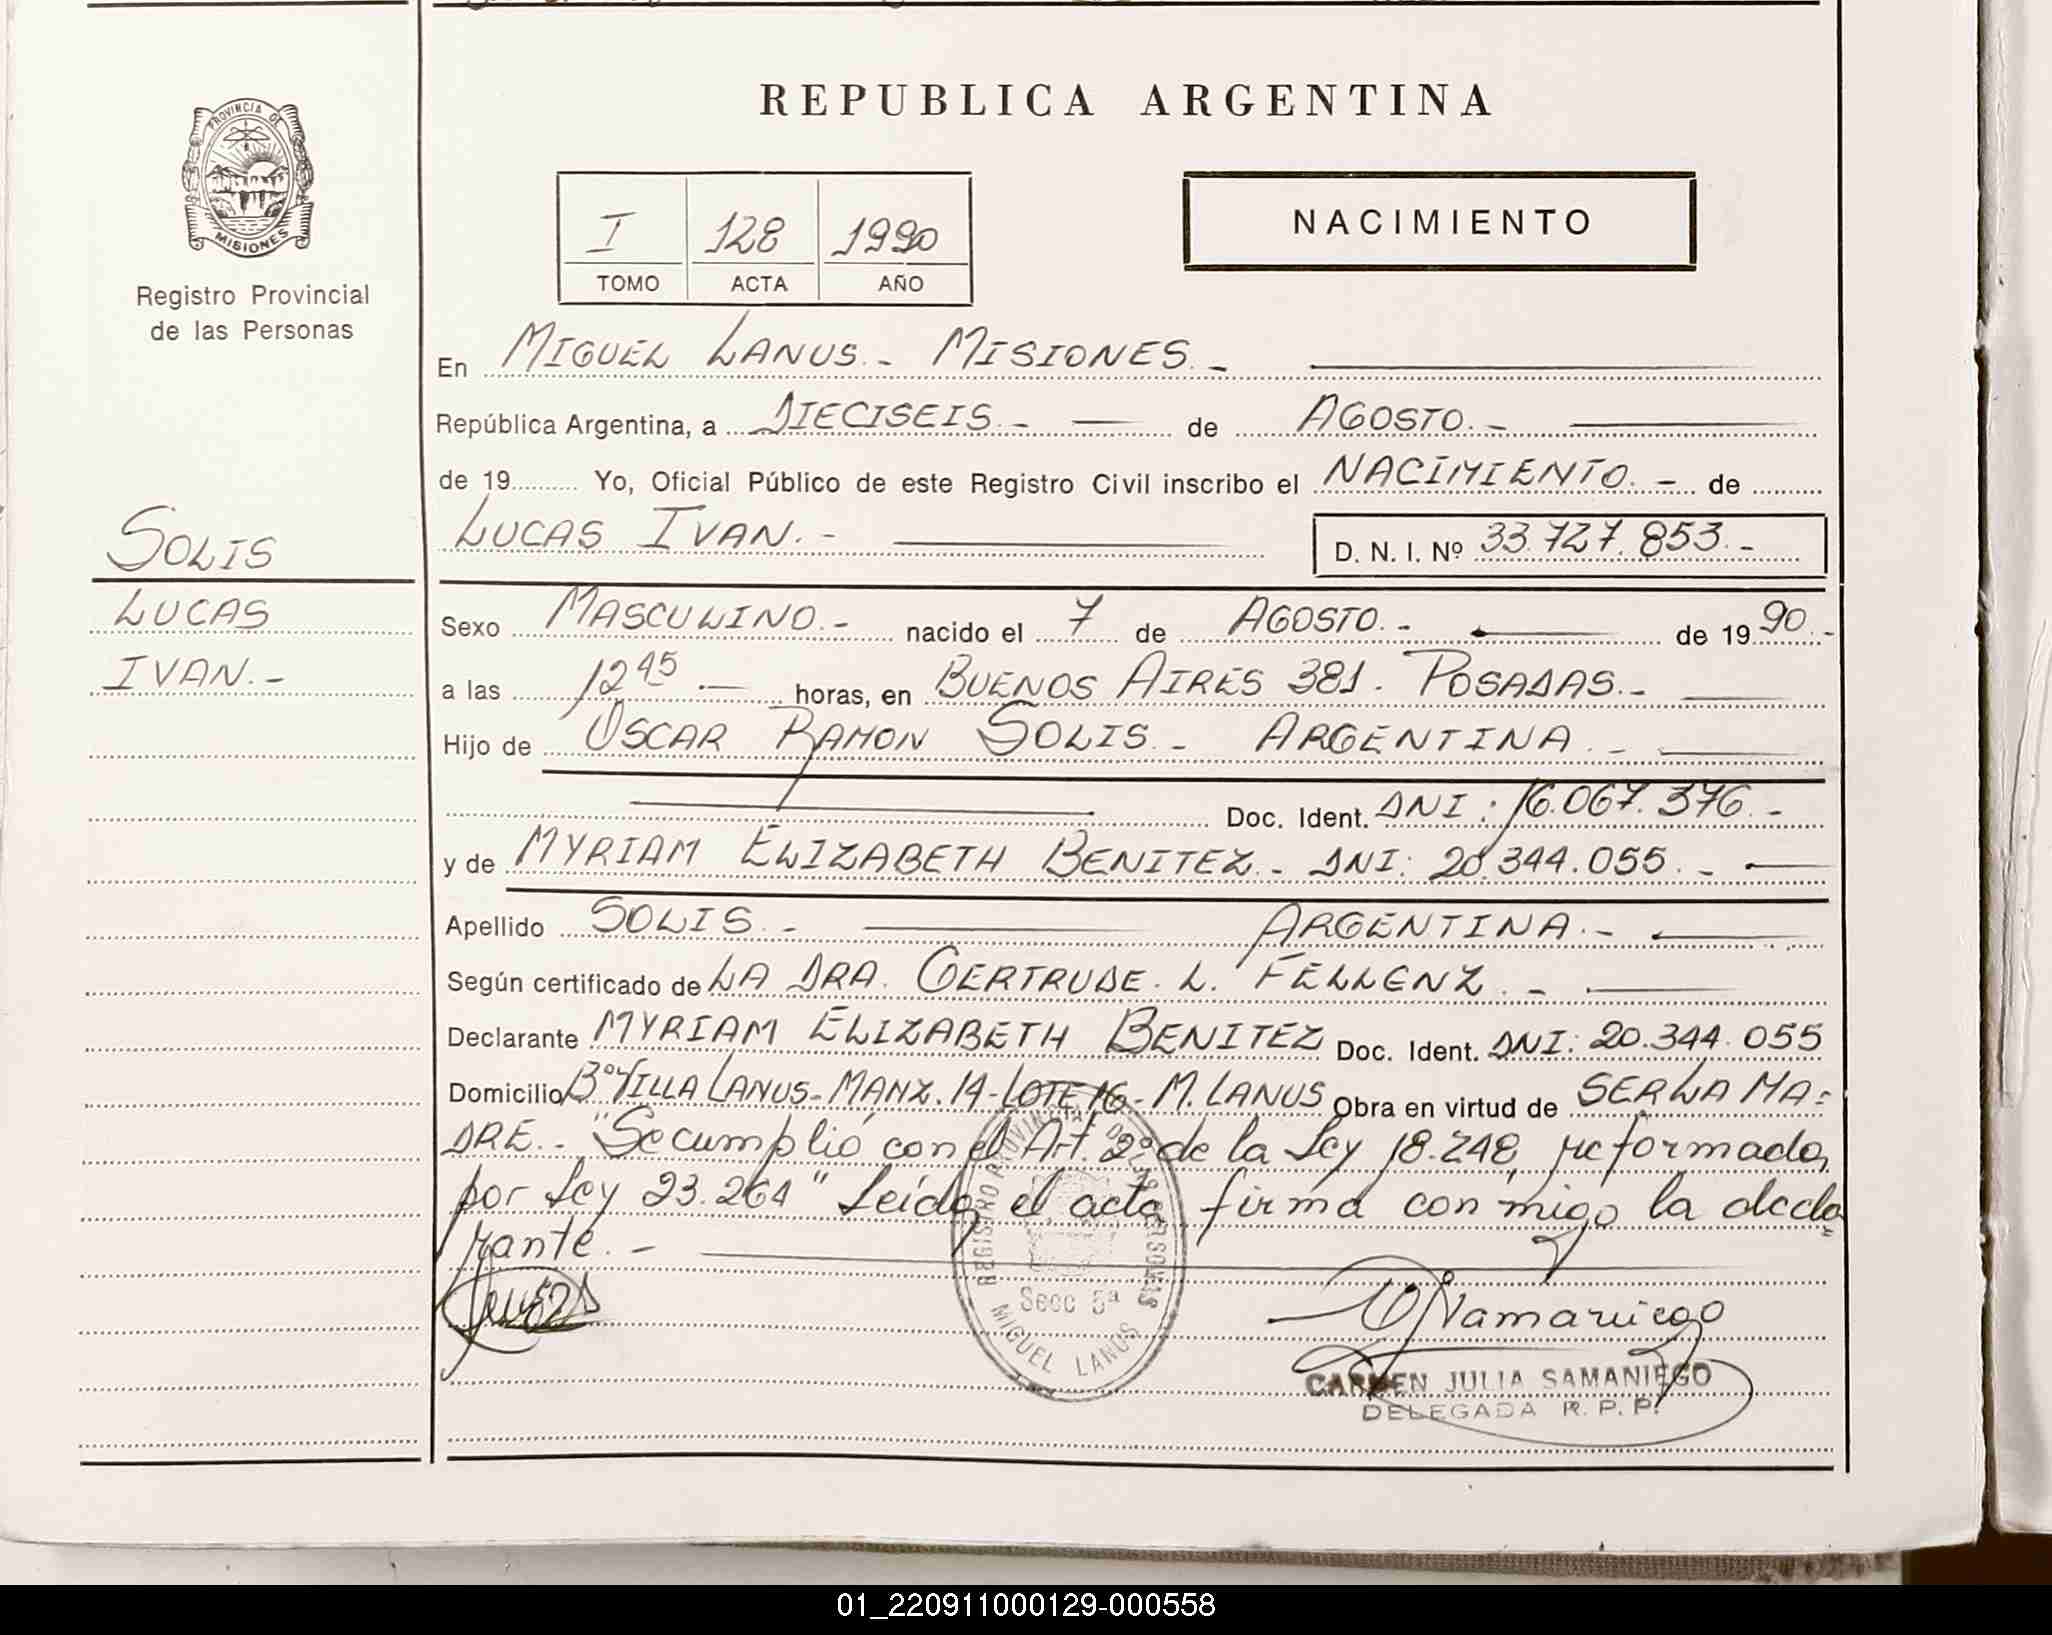 REPUBLICA ARGENTINA
PROVINCIA DE
MISIONES
Registro Provincial
de las Personas
I 128 1990
TOMO ACTA AÑO
NACIMIENTO
En MIGUEL LANUS.- MISIONES.-
República Argentina, a DIECISEIS.- de AGOSTO.-
de 19.......... Yo, Oficial Público de este Registro Civil inscribo el NACIMIENTO.- de
LUCAS IVAN.- D. N. I. Nº 33.727.853.-
SOLIS
LUCAS
IVAN.-
Sexo MASCULINO.- nacido el 7 de AGOSTO.- de 1990.-
a las 12 45.- horas, en BUENOS AIRES 381. POSADAS.-
Hijo de OSCAR RAMON SOLIS.- ARGENTINA.-
Doc. Ident. DNI: 16.067.376.-
y de MYRIAM ELIZABETH BENITEZ.- DNI: 20.344.055.-
Apellido SOLIS.- ARGENTINA.-
Según certificado de LA DRA. GERTRUDE. L. FELLENZ.-
Declarante MYRIAM ELIZABETH BENITEZ Doc. Ident. DNI: 20.344.055
Domicilio Bº VILLA LANUS- MANZ. 14- LOTE 16- M. LANUS Obra en virtud de SER LA MA=
DRE.- "Se cumplió con el Art. 2º de la Ley 18.248, reformada,
por Ley 23.264" Leída el acta firma con migo la decla
rante.-
REGISTRO PROVINCIAL DE LAS PERSONAS
Secc 5ª
MIGUEL LANUS
CARMEN JULIA SAMANIEGO
DELEGADA R. P. P.
01_220911000129-000558